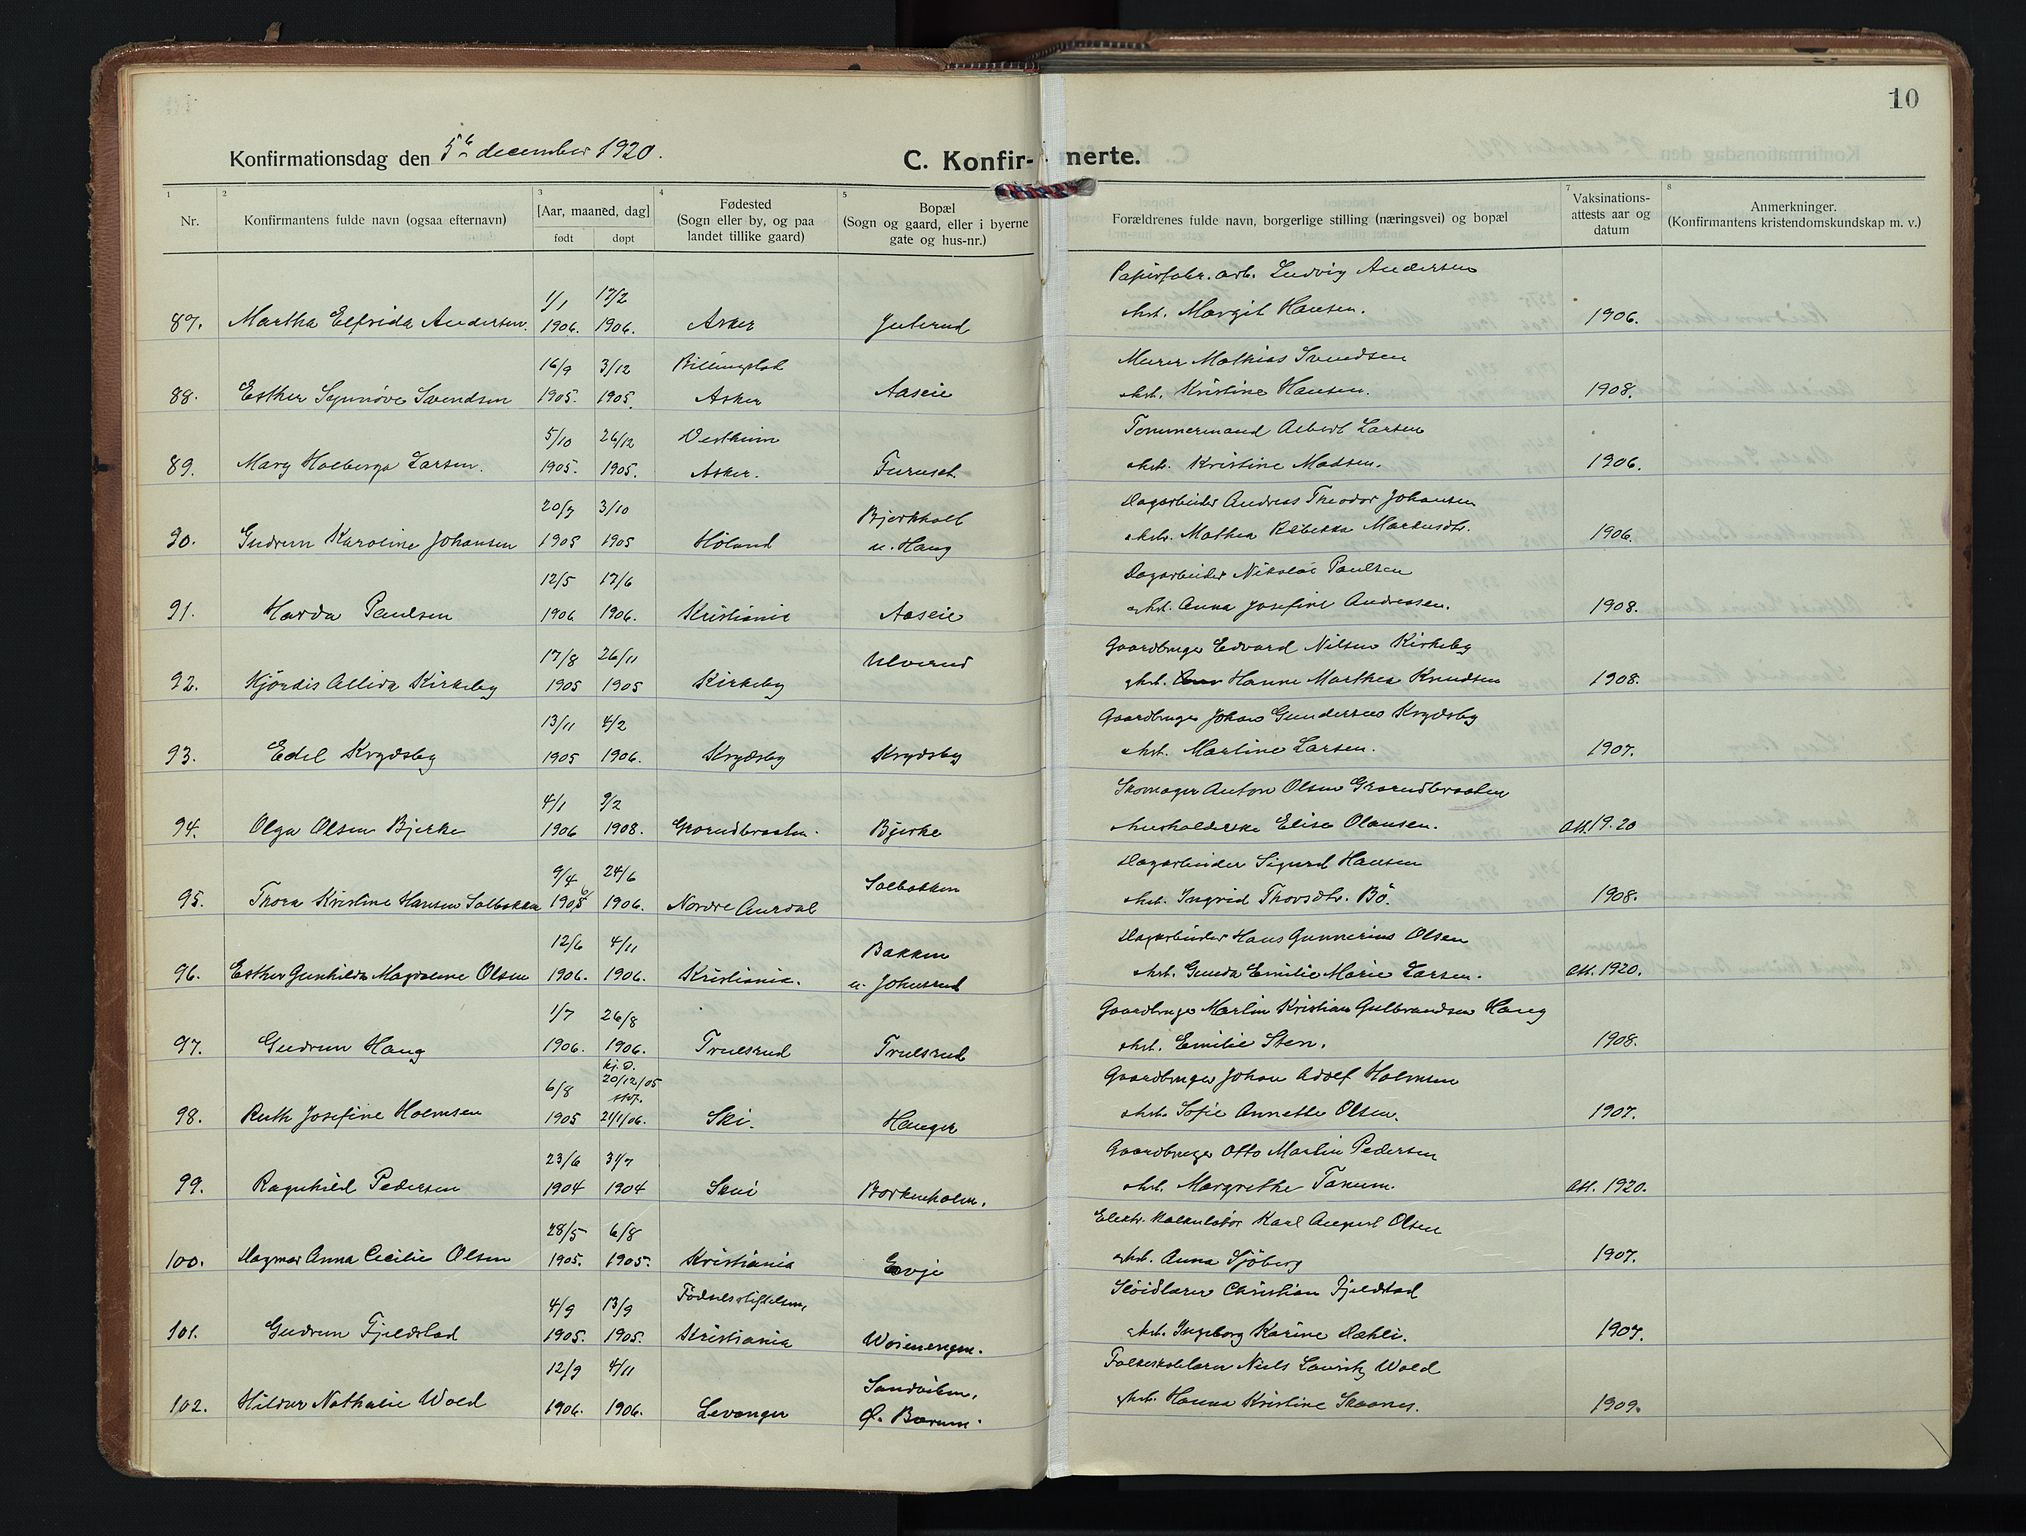 10
Konfirmationsdag den 5te december 1920.
C. Konfirmerte.
1 2 3 4 5 7 8
Nr.
Konfirmantens fulde navn (ogsaa efternavn)
[Aar, maaned, dag]
født døpt
Fødested
(Sogn eller by, og paa
landet tillike gaard)
Bopæl
(Sogn og gaard, eller i byerne
gate og hus-nr.)
Forældrenes fulde navn, borgerlige stilling (næringsvei) og bopæl
Vaksinations-
attests aar og
datum
Anmerkninger.
(Konfirmantens kristendomskundskap m. v.)
1/1 17/2 Papirfabr. arb. Ludvig Andersen
87. Martha Elfrida Andersen. 1906. 1906. Asker Juterud Margit Hansen. 1906.
16/9 3/12 Billingstad Murer Mathias Svendsen
88. Esther Synnøve Svendsen 1905. 1905. Asker Aaseie Kristine Hansen. 1908.
5/10 26/12 Vestheim Tømmermand Albert Larsen
89. Mary Holberga Larsen. 1905. 1905. Asker. Furuset Kristine Madsen. 1906.
20/7 3/10 Bjerkholt Dagarbeider Andreas Theodor Johansen
90. Gudrun Karoline Johansen 1905 1905 Høland u. Haug Mathea Rebekka Markusdtr. 1906.
12/5 17/6 Dagarbeider Nikolai Paulsen
91. Harda Paulsen 1906 1906. Kristiania Aaseie Anna Josefine Andreasen. 1908.
17/8 26/11 Ulverud Gaardbruger Edvard Nilsen Kirkeby
92. Hjørdis Allida Kirkeby 1905 1905 Kirkeby Hanne Marthea Knudsen 1908.
13/11 4/2 Gaardbruger Johan Gundersen Krydsby
93. Edel Krydsby 1905 1906. Krydsby Krydsby Martine Larsen. 1907.
4/1 9/2 Skomager Anton Olsen Grorudbraaten
94. Olga Olsen Bjerke 1906 1908. Grorudbraaten. Bjerke husholderske Elise Olausen. Att. 1920
9/4 24/6 Solbakken Dagarbeider Sigurd Hansen
95. Thora Kristine Hansen Solbakken 1906 1906. Nordre Aurdal Ingrid Thorsdtr. Bö. 1908.
12/6 4/11 Bakken Dagarbeider Hans Gunnerius Olsen
96. Esther Gunhilda Magdalene Olsen 1906. 1906. Kristiania. u. Johnsrud Gunda Emilie Marie Larsen. Att. 1920.
1/7 26/8 Gaardbruger Martin Kristian Gulbrandsen Haug
97. Gudrun Haug 1906. 1906. Trulsrud Trulsrud Emilie Sten. 1908.
6/8 hj. d. 20/12/05 stf. Gaardbruger Johan Adolf Holmsen
98. Ruth Josefine Holmsen 1905 21/1/06. Ski. Hauger Sofie Annette Olsen. 1907.
23/6 31/7 Gaardbruger Otto Martin Pedersen
99. Ragnhild Pedersen 1904 1904 Skui Borkenholm. Margrethe Tanum. Att. 1920.
28/5 6/8 Elektr. Kalkulatör Karl August Olsen
100. Dagmar Anna Cecilie Olsen 1905. 1905. Kristiania Evje Anna Sjöberg 1907.
4/9 13/9 Födselsstiftelsen, Slöidlærer Christian Fjeldstad
101. Gudrun Fjeldstad 1905. 1905. Kristiania Woienengen. Ingeborg Karine Dæhli. 1907.
12/9 4/11 Sandviken, Folkeskolelærer Niels Lauritz Wold
102. Hildur Nathalie Wold 1906. 1906. Levanger Ø. Bærum. Hanna Kristine Skaanes. 1909.